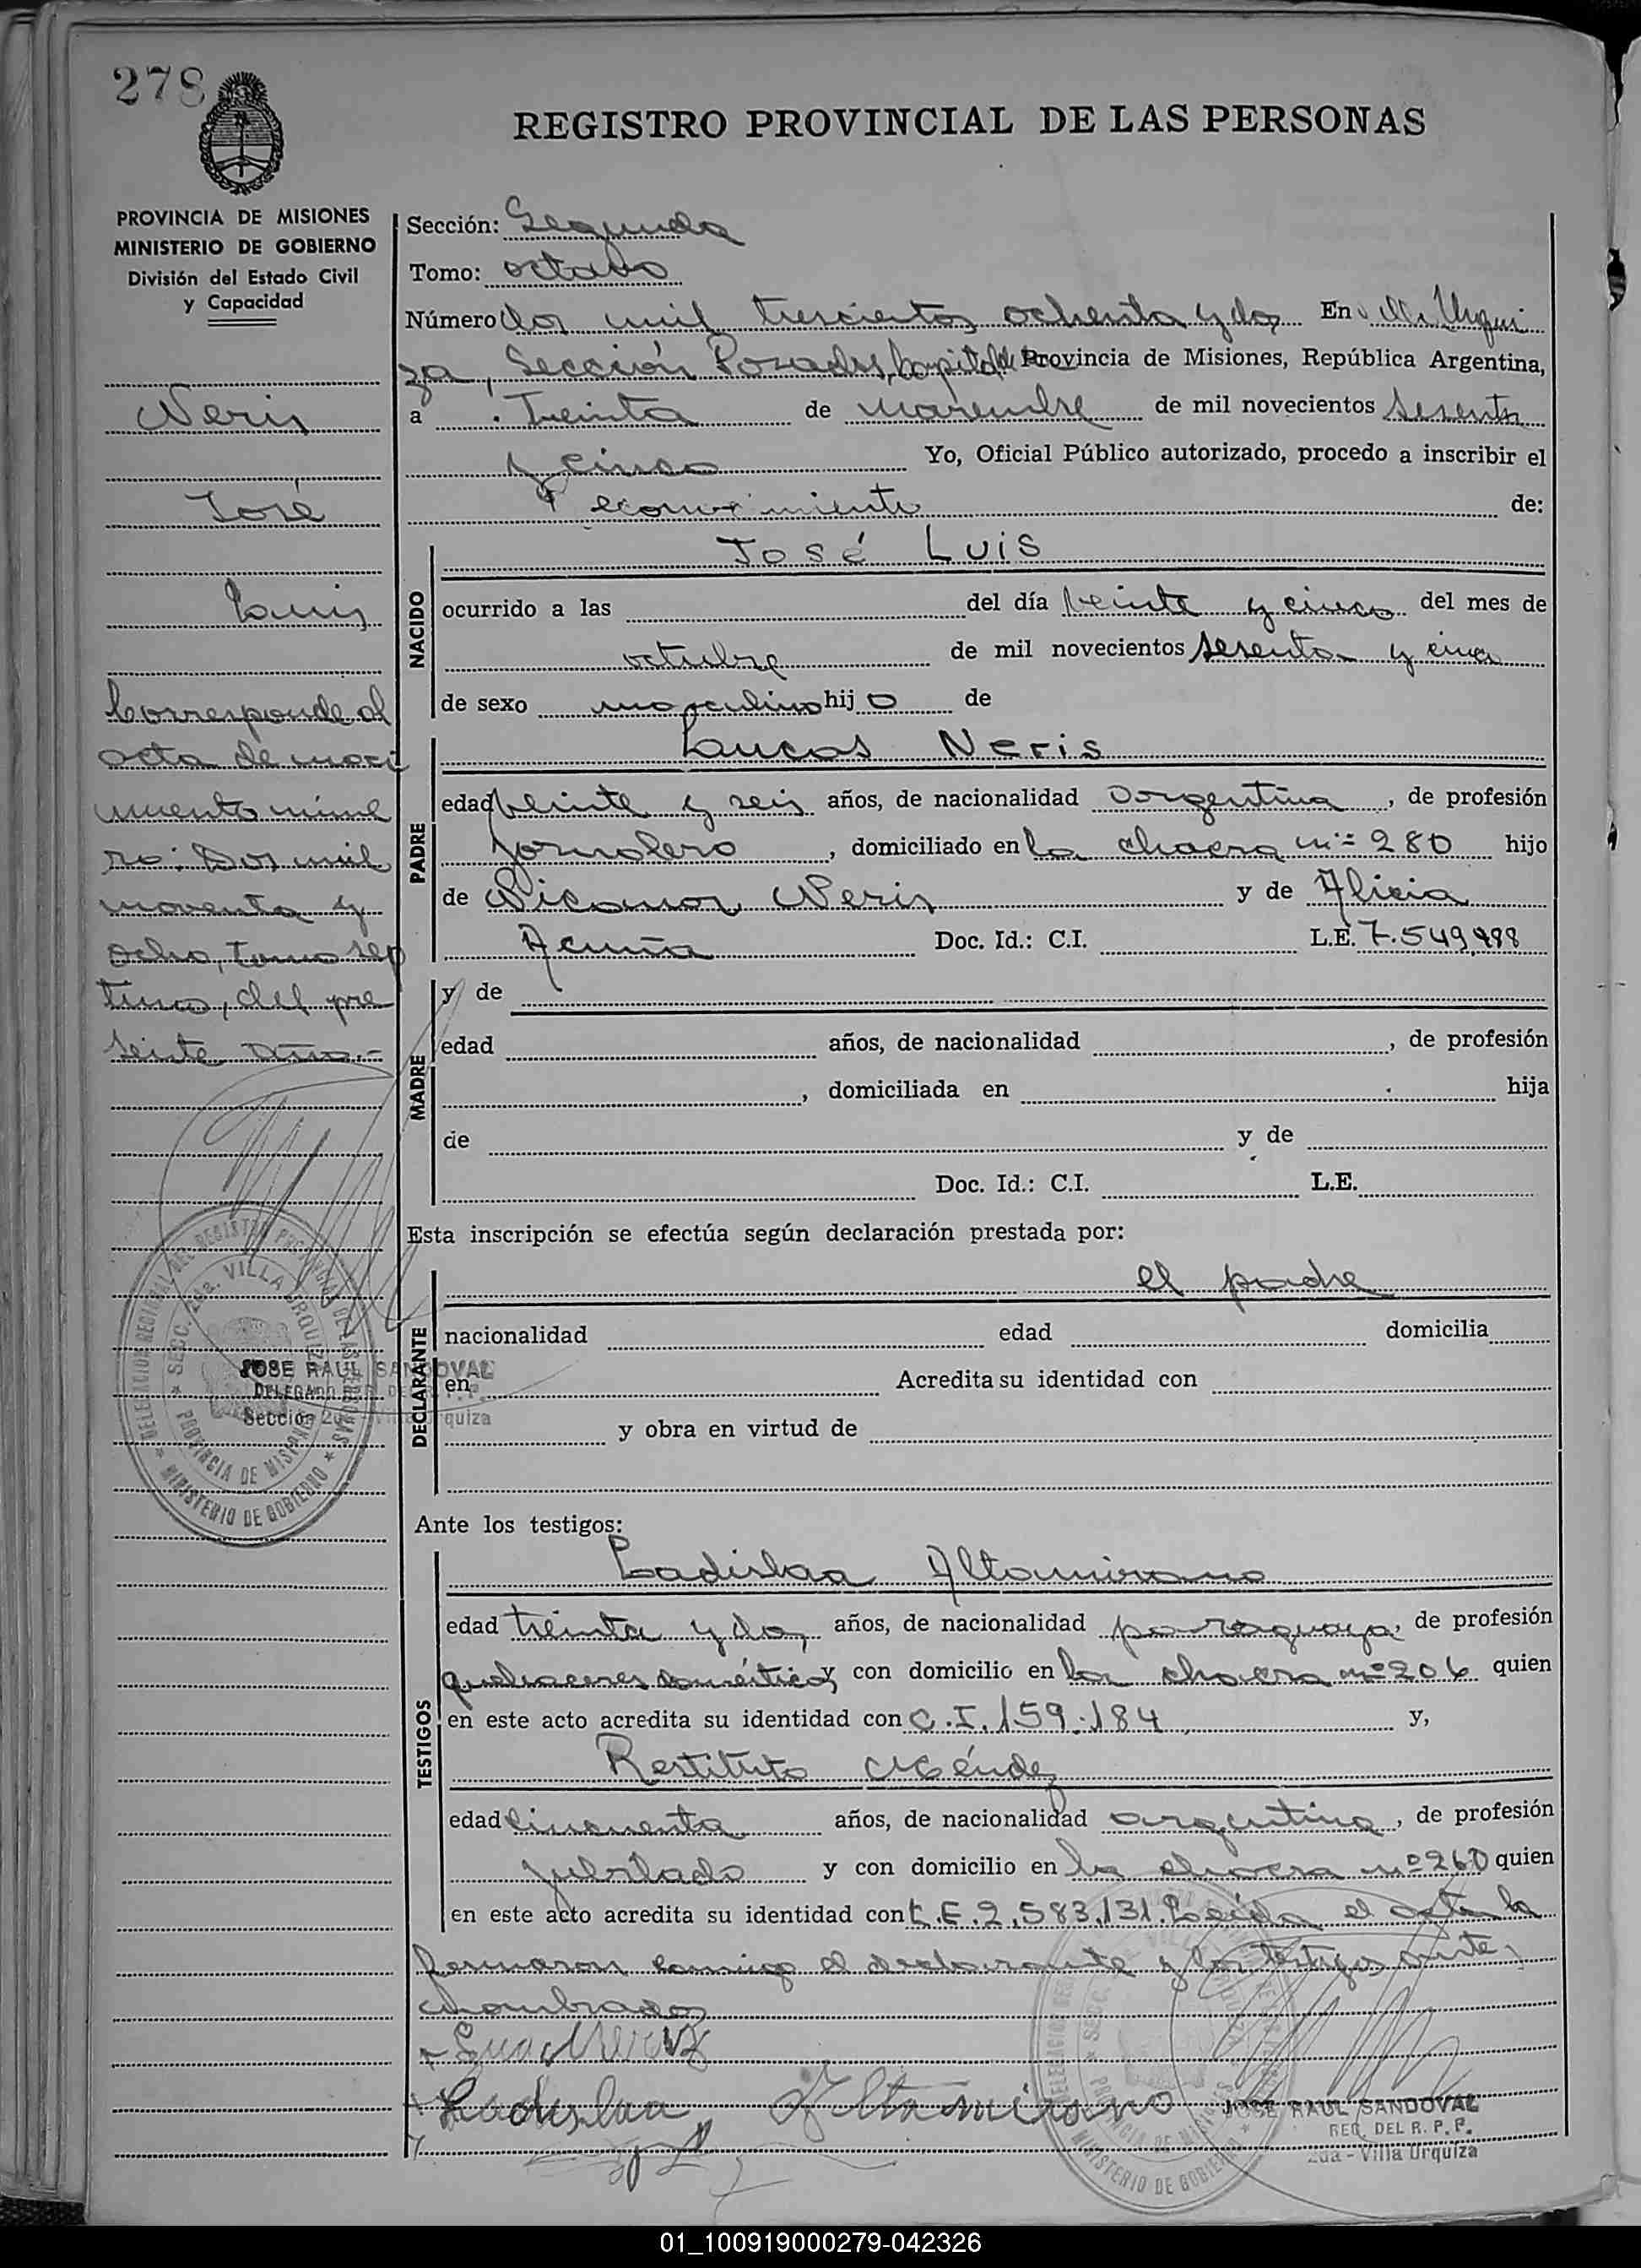 278
REGISTRO PROVINCIAL DE LAS PERSONAS
PROVINCIA DE MISIONES
MINISTERIO DE GOBIERNO
División del Estado Civil
y Capacidad
Neris
José
Luis
Corresponde al
acta de naci
miento núme
ro: Dos mil
noventa y
ocho, tomo sep
timo, del pre
sente año.-
JOSE RAUL SANDOVAL
Sección 2da - Villa Urquiza
Sección: Segunda
Tomo: octavo
Número dos mil trescientos ochenta y dos En Villa Urqui
za, Sección Posadas, Capital de Provincia de Misiones, República Argentina,
a Treinta de noviembre de mil novecientos sesenta
y cinco Yo, Oficial Público autorizado, procedo a inscribir el
Reconocimiento de:
NACIDO
José Luis
ocurrido a las del día veinte y cinco del mes de
octubre de mil novecientos sesenta y cinco
de sexo masculino hijo de
PADRE
Luucas Neris
edad veinte y seis años, de nacionalidad argentina, de profesión
jornalero, domiciliado en la chacra nº 280 hijo
de Nicanor Neris y de Alicia
Acuña Doc. Id.: C.I. L.E. 7.549,998
MADRE
y de
edad años, de nacionalidad , de profesión
, domiciliada en hija
de y de
Doc. Id.: C.I. L.E.
Esta inscripción se efectúa según declaración prestada por:
DECLARANTE
el padre
nacionalidad edad domicilia
en Acredita su identidad con
y obra en virtud de
Ante los testigos:
TESTIGOS
Ladislaa Altamirano
edad treinta y dos años, de nacionalidad paraguaya, de profesión
quehaceres domésticos y con domicilio en la chacra nº 206 quien
en este acto acredita su identidad con C.I. 159.184 y,
Restituto Méndez
edad cincuenta años, de nacionalidad argentina, de profesión
jubilado y con domicilio en la chacra nº 260 quien
en este acto acredita su identidad con L.E. 2.583.131. Leída el acta la
firmaron conmigo el declarante y los testigos ante
nombrados
Ladislaa Altamirano
JOSE RAUL SANDOVAL
DEL R. P. P.
2da - Villa Urquiza
DELEGACION REGIONAL DEL REGISTRO PROVINCIAL DE LAS PERSONAS
SECC. 2da. VILLA URQUIZA
PROVINCIA DE MISIONES
MINISTERIO DE GOBIERNO
01_100919000279-042326